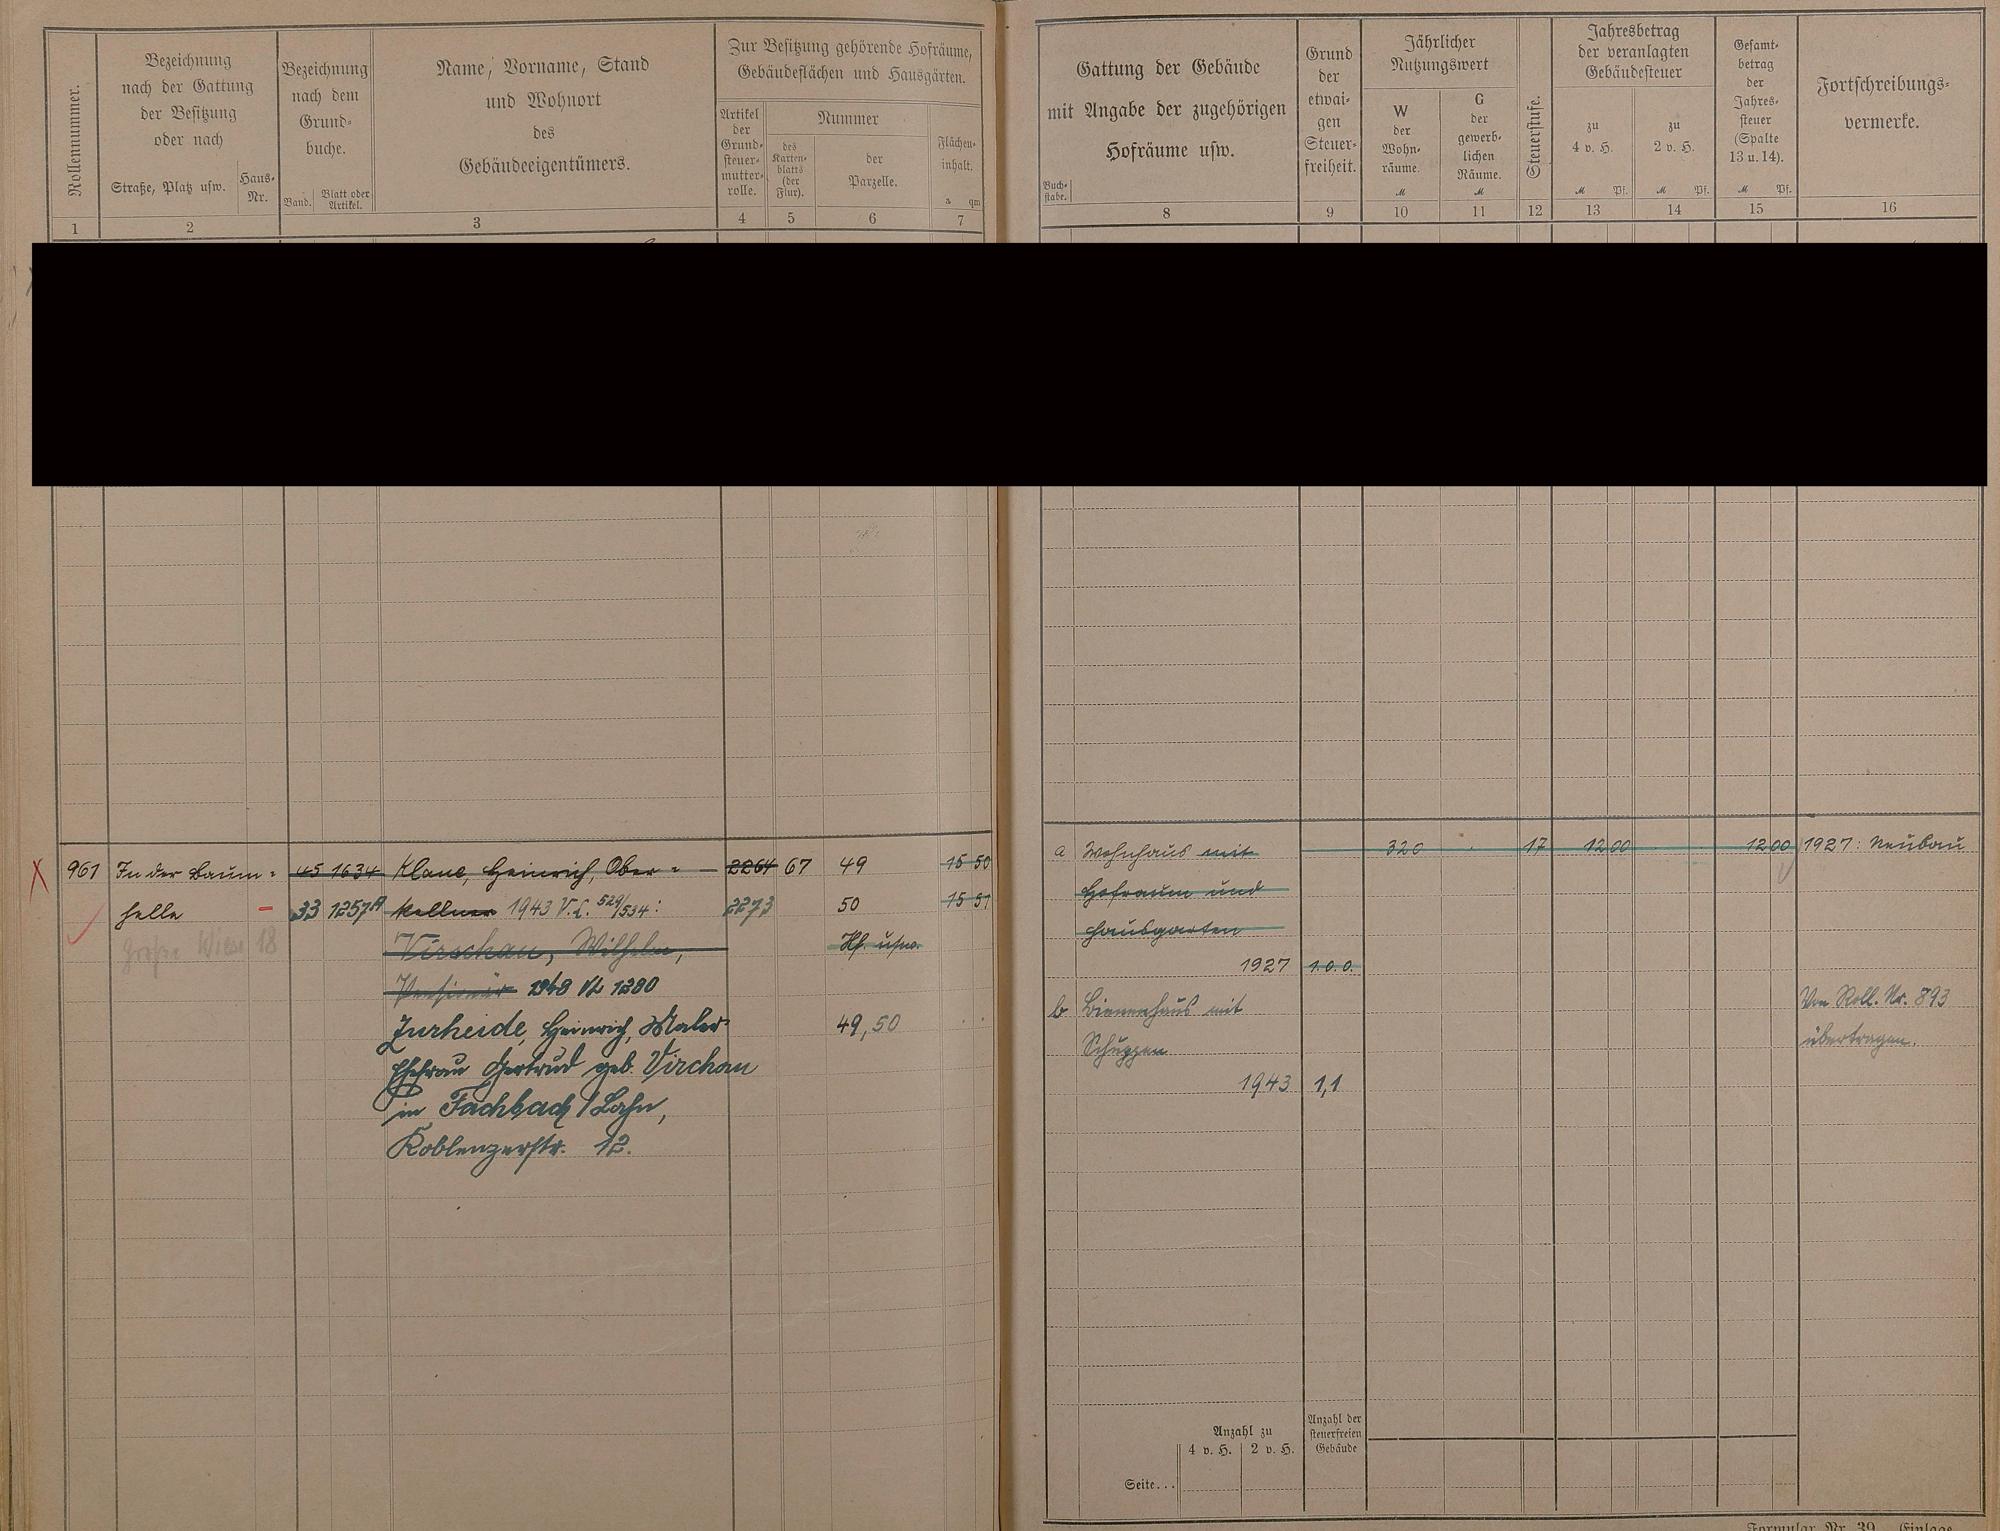 Rollennummer.
Bezeichnung
nach der Gattung
der Besitzung
oder nach
Straße, Platz usw.
Haus-
Nr.
Bezeichnung
nach dem
Grund-
buche.
Band.
Blatt oder
Artikel.
Name, Vorname, Stand
und Wohnort
des
Gebäudeeigentümers.
Zur Besitzung gehörende Hofräume,
Gebäudeflächen und Hausgärten.
Artikel
der
Grund-
steuer-
mutter-
rolle.
Nummer
des
Karten-
blatts
(der
Flur).
der
Parzelle.
Flächen-
inhalt.
a qm
1 2 3 4 5 6 7
Gattung der Gebäude
mit Angabe der zugehörigen
Hofräume usw.
Buch-
stabe.
Grund
der
etwai-
gen
Steuer-
freiheit.
Jährlicher
Nutzungswert
W
der
Wohn-
räume.
M
G
der
gewerb-
lichen
Räume.
M
Steuerstufe.
Jahresbetrag
der veranlagten
Gebäudesteuer
zu
4 v. H.
M Pf.
zu
2 v. H.
M Pf.
Gesamt-
betrag
der
Jahres-
steuer
(Spalte
13 u. 14).
M Pf.
Fortschreibungs-
vermerke.
8 9 10 11 12 13 14 15 16
961 In der Baum- 45 1634 Klane, Heinrich, Ober- 2264 67 49 15 50
helle – 33 1257A kellner 1943 V.L. 529/534: 2273 50 15 51
Große Wiese 18
Virschau, Wilhelm, Hf. usw.
1948 VL 1280
Zurheide, Heinrich, Maler 49,50
Ehefrau Gertrud geb. Virchau
in Fachbach/Lahn,
Koblenzerstr. 12.
a Wohnhaus mit 320 17 12 00 12 00 1927: Neubau
Hofraum und
Hausgarten
1927 1.0.0.
b Bienenhaus mit Von Roll. Nr. 893
Schuppen übertragen.
1943 1,1
Anzahl zu
4 v. H. 2 v. H.
Anzahl der
steuerfreien
Gebäude
Seite...
Formular Nr. 39. Einlage